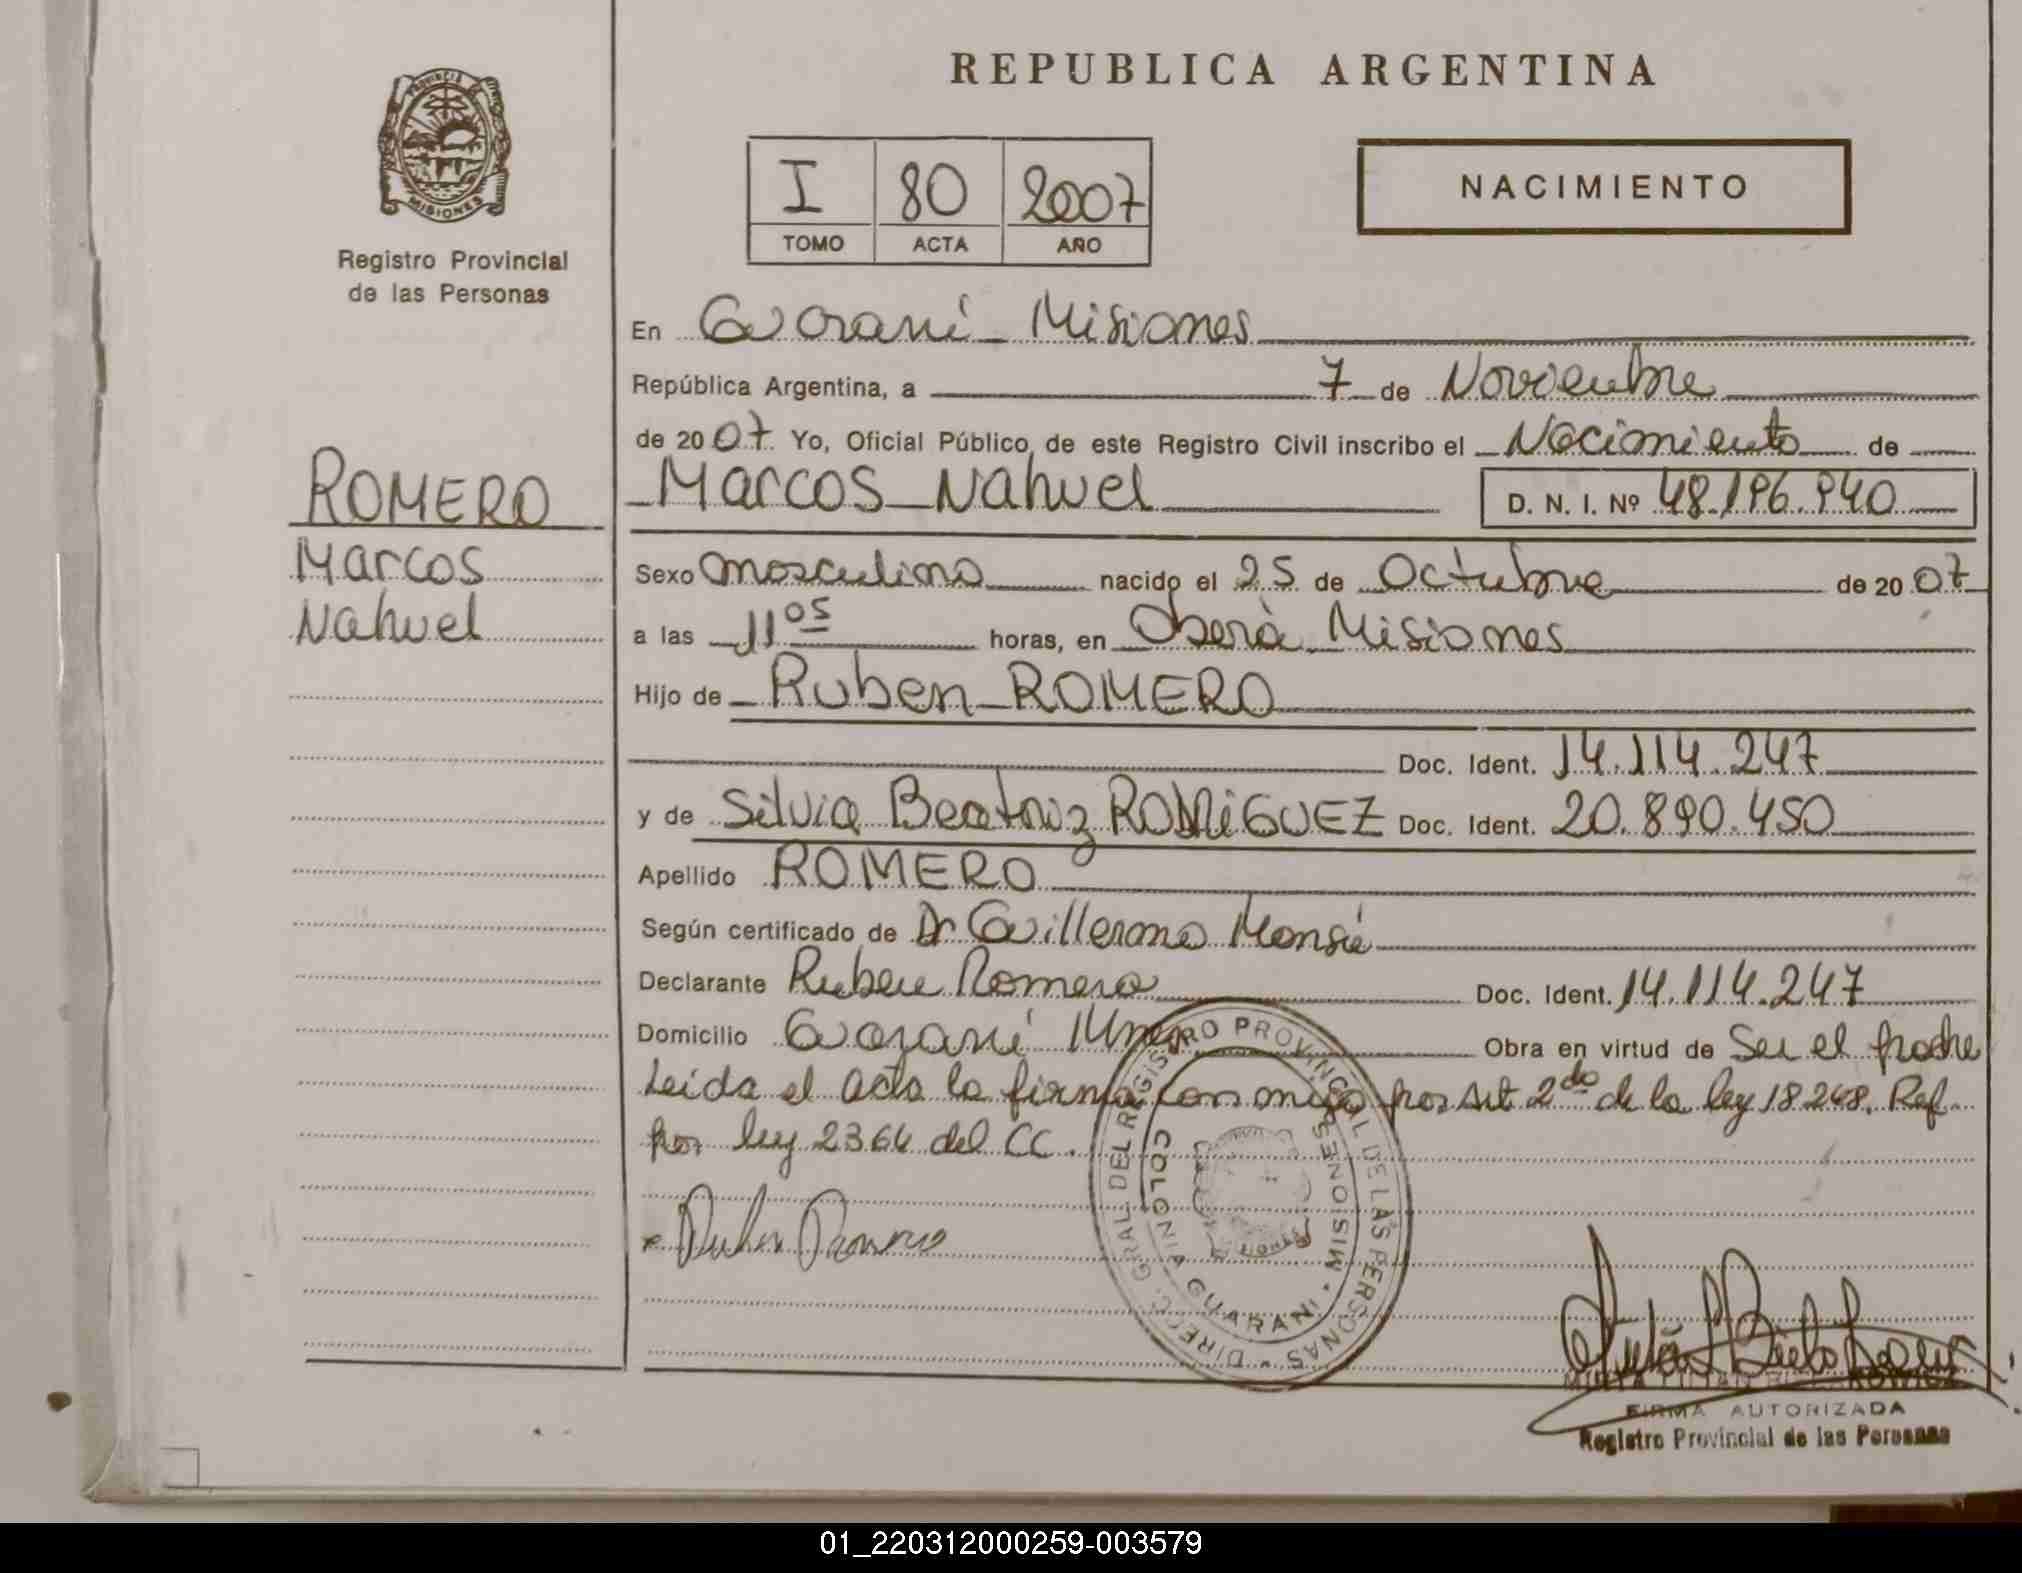 REPUBLICA ARGENTINA
PROVINCIA
MISIONES
Registro Provincial
de las Personas
I 80 2007
TOMO ACTA AÑO
NACIMIENTO
En Guarani - Misiones
República Argentina, a 7 de Noviembre
de 2007 Yo, Oficial Público de este Registro Civil inscribo el Nacimiento de
Marcos Nahuel D. N. I. Nº 48.196.940
ROMERO
Marcos
Nahuel
Sexo masculino nacido el 25 de Octubre de 2007
a las 11 05 horas, en Oberà Misiones
Hijo de Ruben ROMERO
Doc. Ident. 14.114.247
y de Silvia Beatriz RODRIGUEZ Doc. Ident. 20.890.450
Apellido ROMERO
Según certificado de Dr Guillermo
Declarante Ruben Romero Doc. Ident. 14.114.247
Domicilio Guarani Mnes Obra en virtud de Ser el padre
Leida el acta la firma con migo por Art 2do de la ley 18248. Ref.
por ley 2364 del CC.
Ruben Romero
DIREC. GRAL DEL REGISTRO PROVINCIAL DE LAS PERSONAS
COLONIA GUARANI • MISIONES
FIRMA AUTORIZADA
Registro Provincial de las Personas
01_220312000259-003579